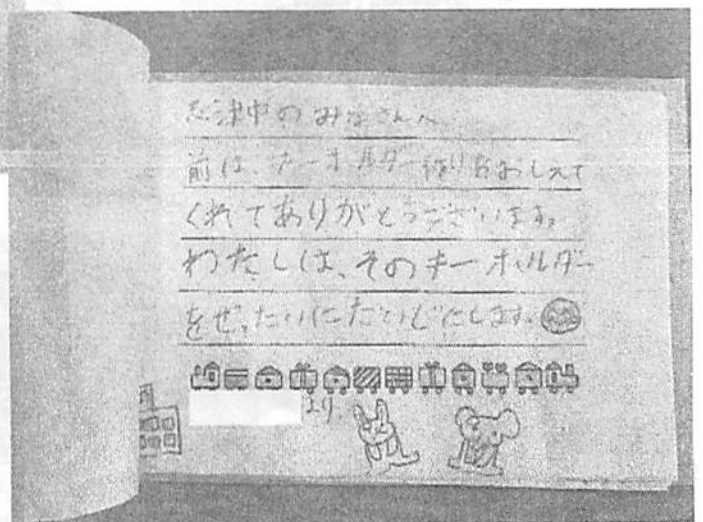 志津中のみなさんへ
前は、キーホルダー作りをおしえて
くれてありがとうございます。
わたしは、そのキーホルダー
をぜったいにだいじにします。
より